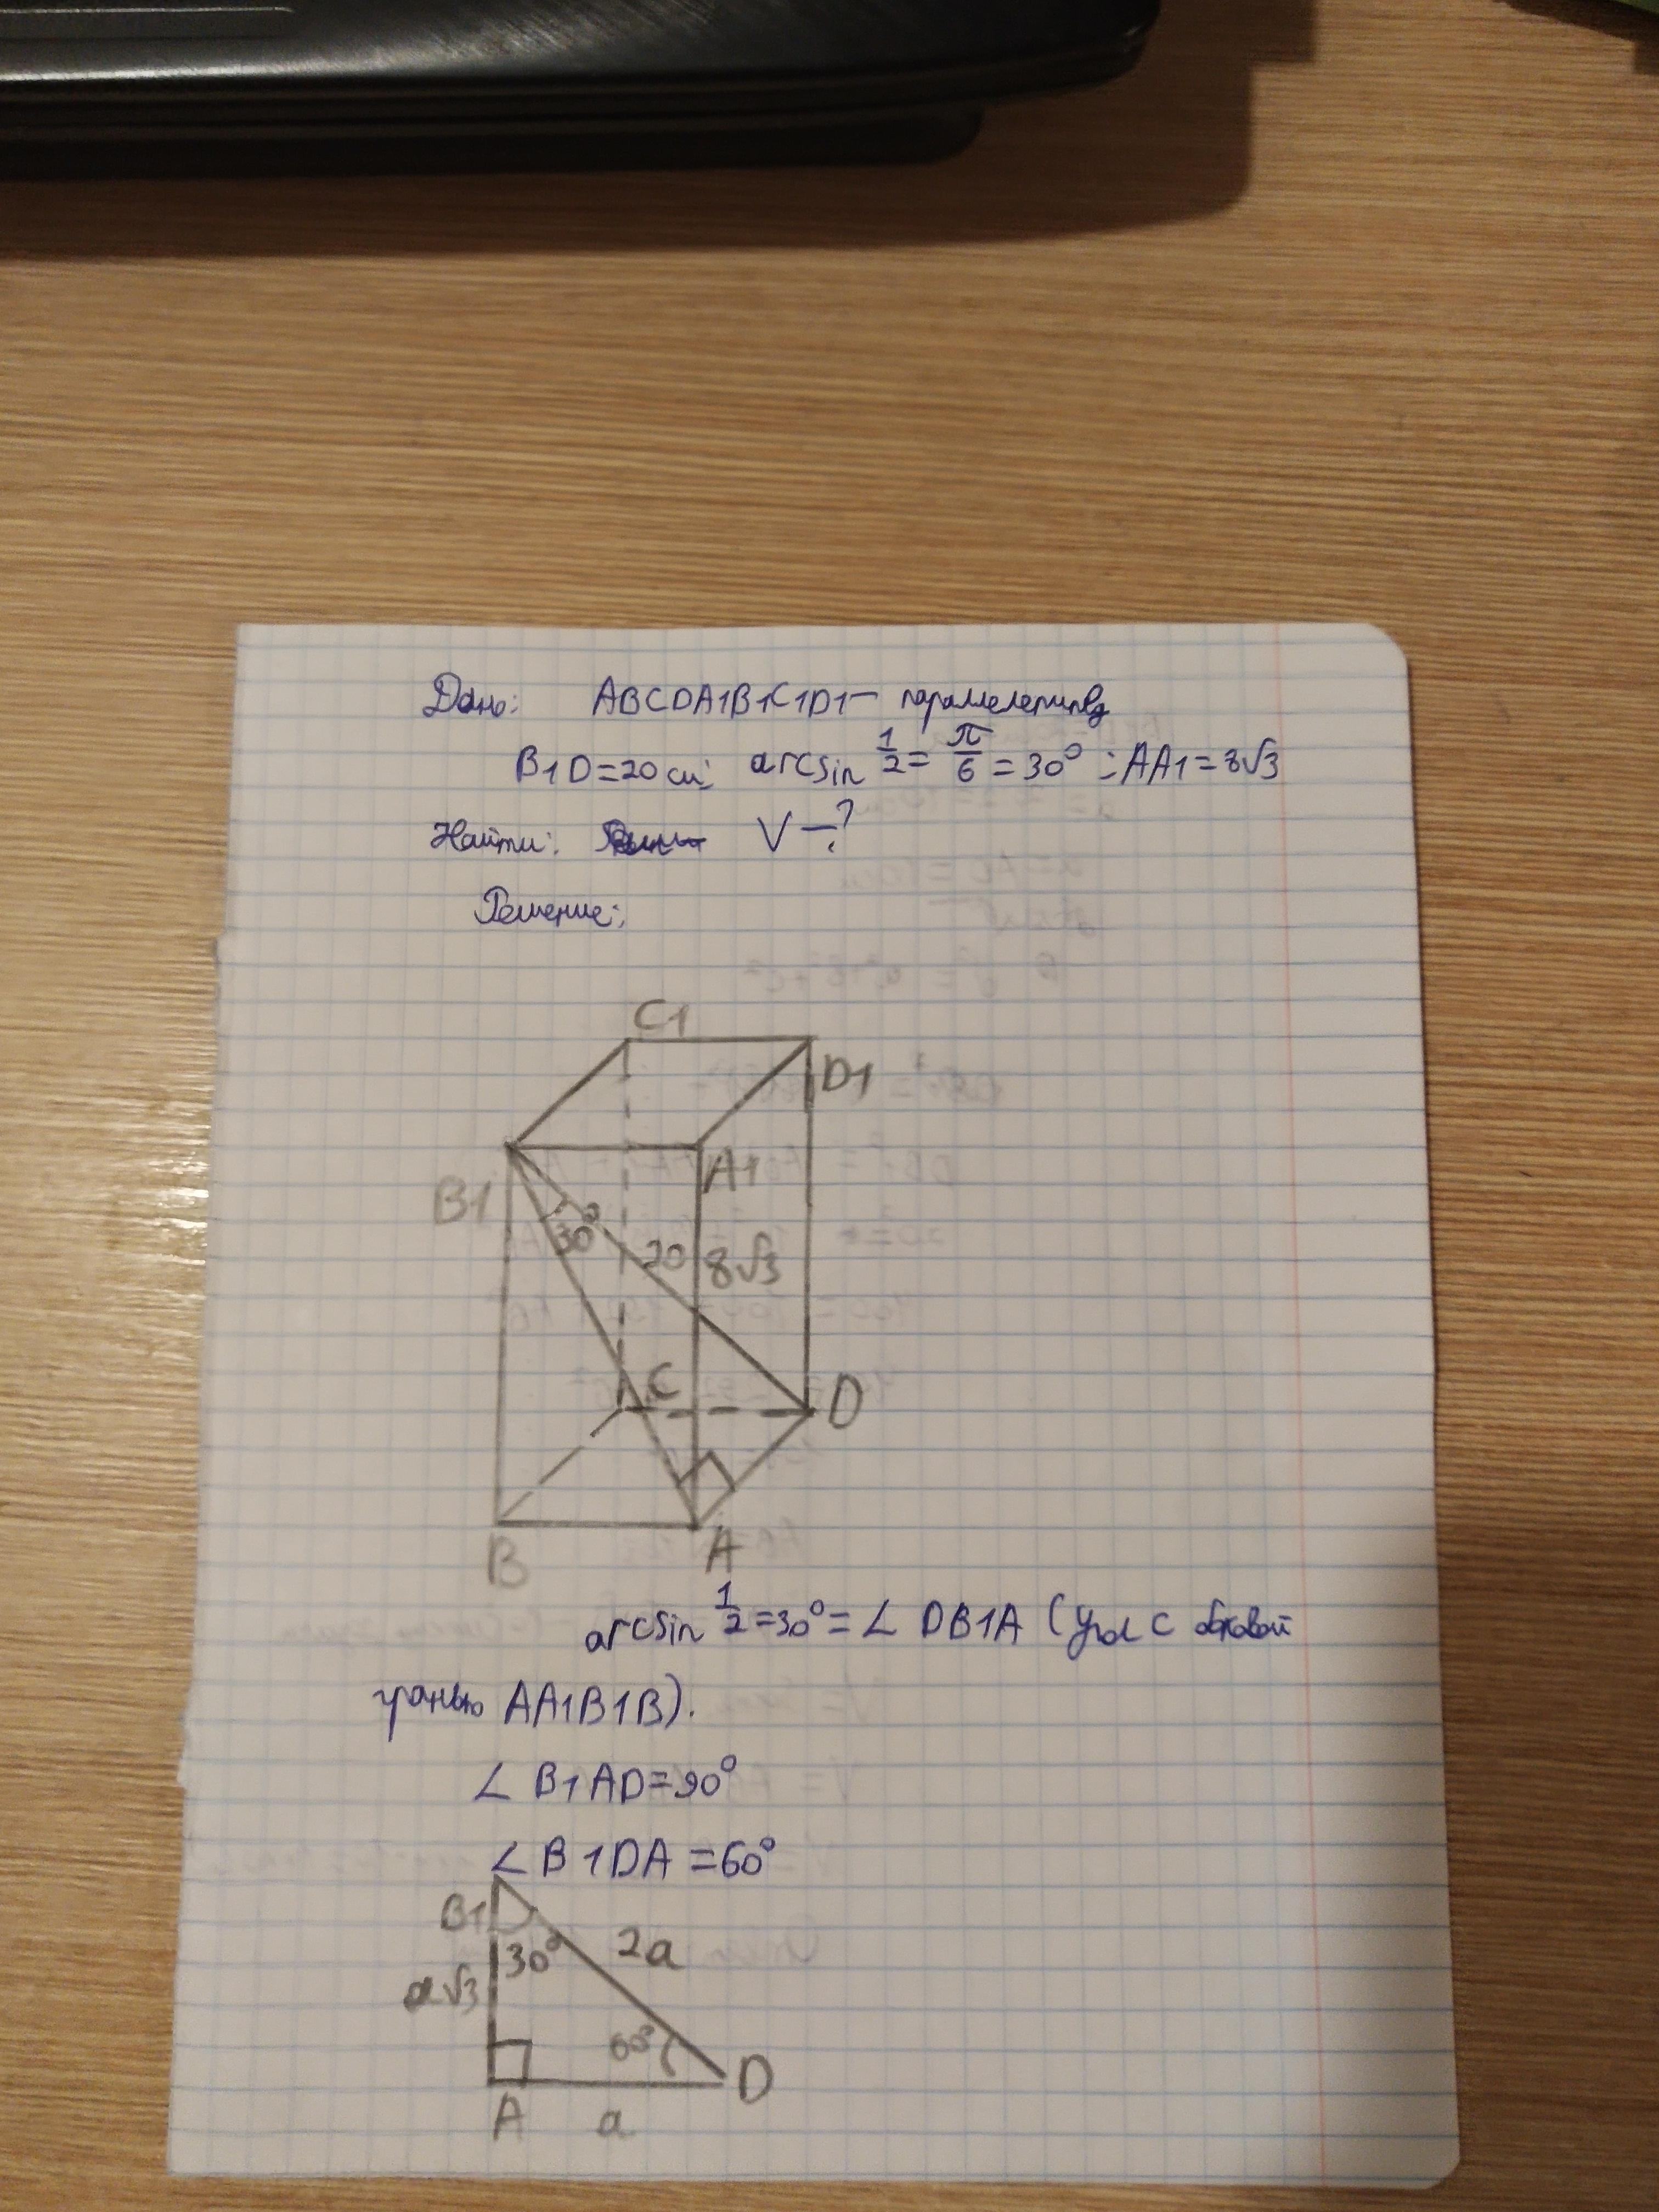 Дано: ABCDA1B1C1D1 – параллелепипед
B1D=20 см; arcsin 1/2 = π/6 = 30° ; AA1=8√3
Найти: V – ?
Решение:
C1
D1
A1
B1
30°
20
8√3
C
D
B
A
arcsin 1/2 = 30° = ∠ DB1A (угол с боковой
гранью AA1B1B).
∠ B1AD=90°
∠ B1DA =60°
B1
30°
2a
a√3
60°
D
A
a